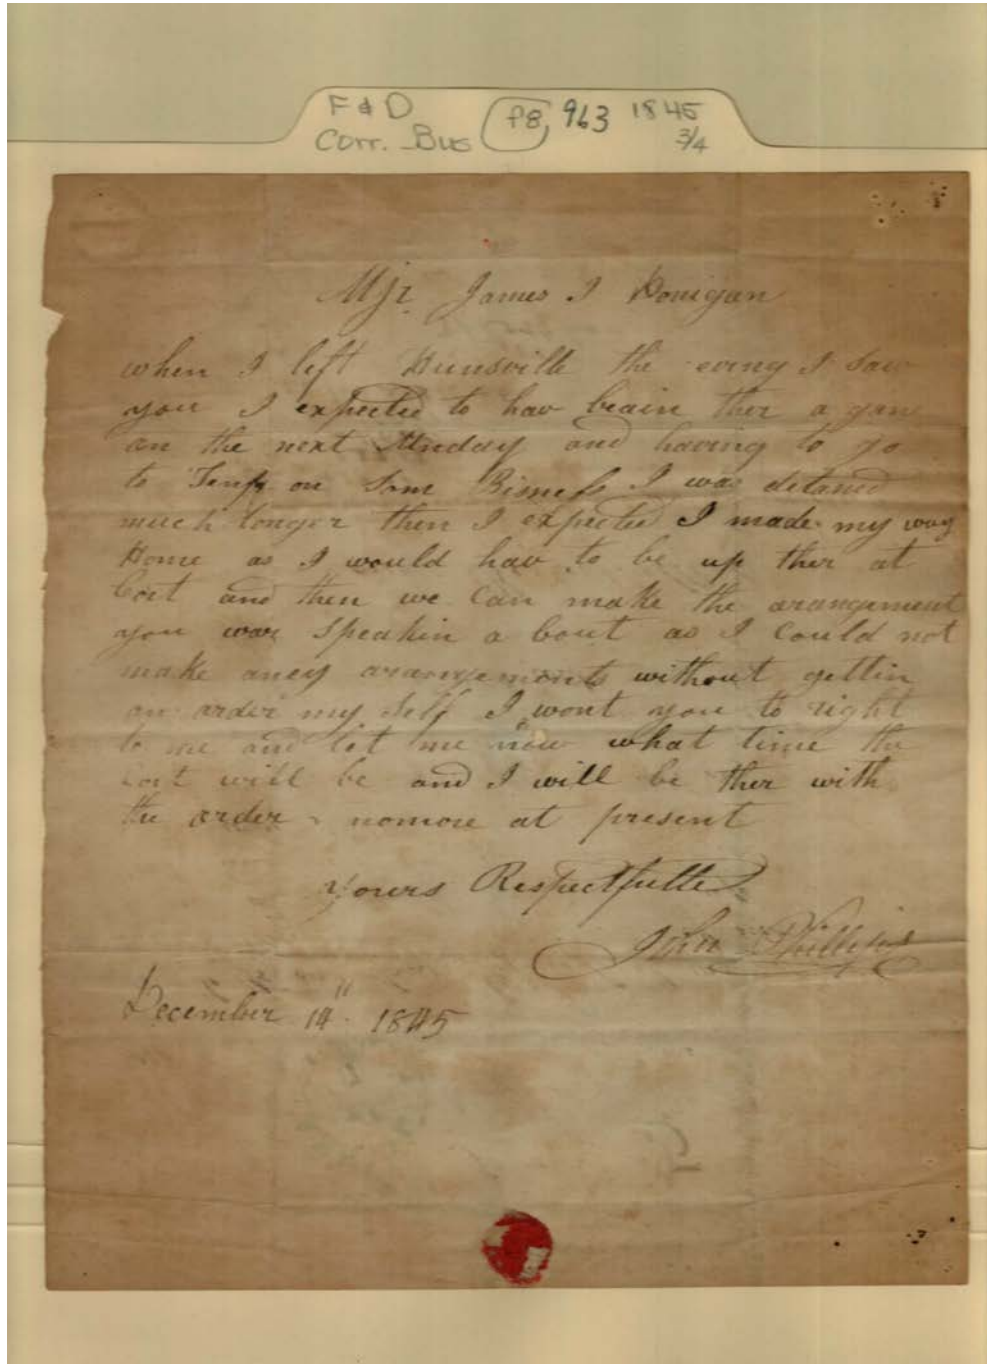 F & D
Corr. Bus
P8, 963 1845
3/4
Mjr. James I Donigan
when I left Hunsville the evning I saw
you I expected to hav beain ther a gane
on the next Munday and having to go
to Tenss on Som Bisness I was detaned
much longer then I expected I made my way
Home as I would hav to be up ther at
Cort and then we Can make the arangement
you war Speakin a bout as I Could not
make aney arangements without gettin
an order my Self I wont you to right
to me and let me now what time the
Cort will be and I will be ther with
the order nomore at present
yours Respectfulle
John Phillips
December 14" 1845